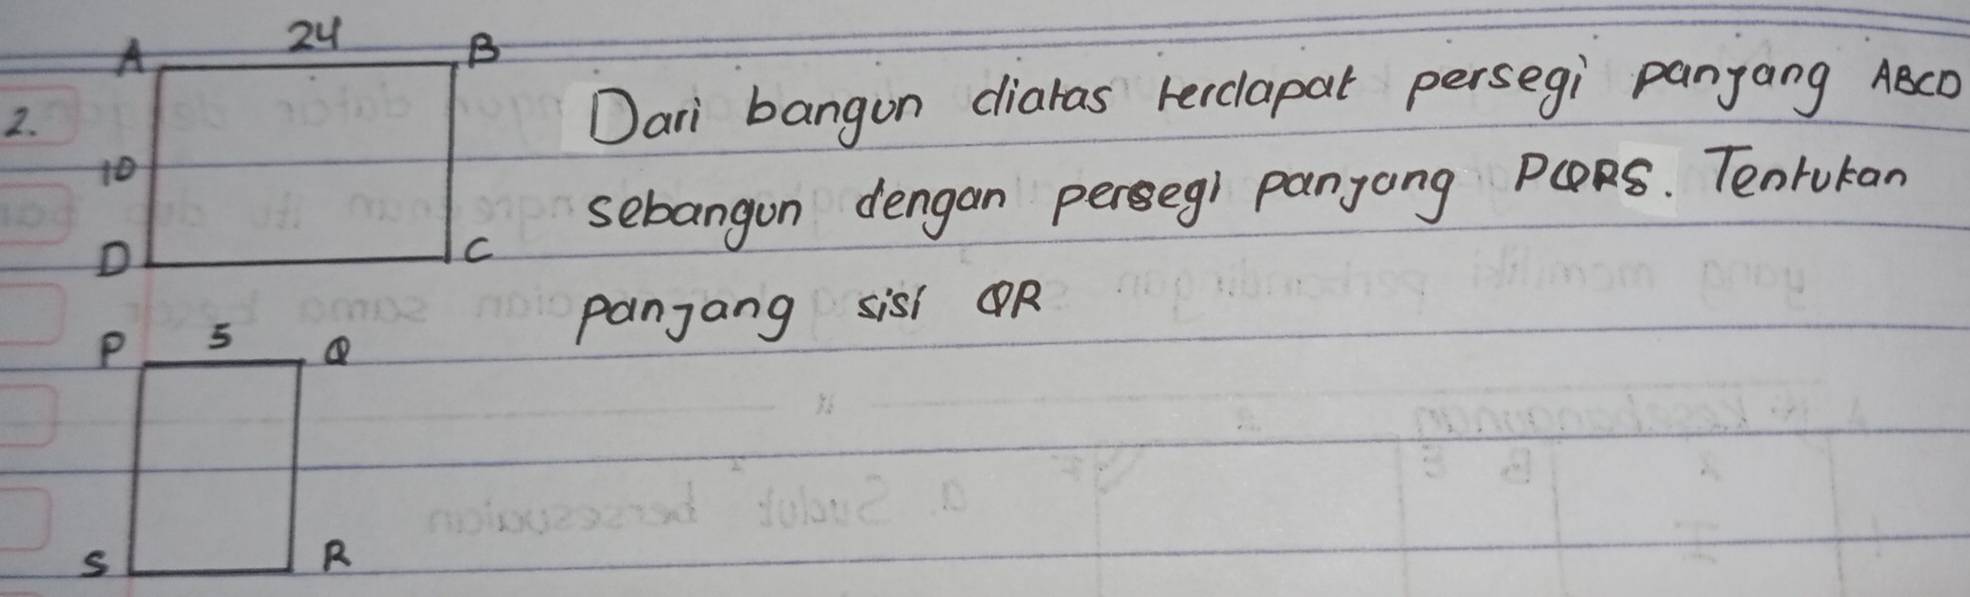 24
A
B
2.
Dari bangun diatas terdapat persegi panjang ABCD
10
sebangun dengan persegi panjang PQRS. Tentukan
D
C
panjang sisi QR
P
5
Q
S
R